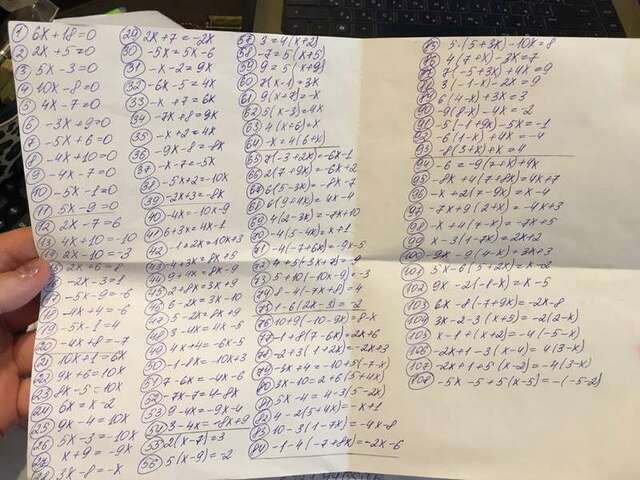 1 6x+18=0
2 2x+5=0
3 5x-3=0
4 10x-8=0
5 4x-7=0
6 -3x+9=0
7 -5x+6=0
8 -4x+10=0
9 -4x-7=0
10 -5x-1=0
11 5x-9=0
12 2x-7=6
13 4x+10=-10
14 2x-10=-3
15 2x+6=8
-2x-3=1
-5x-9=-6
-4x+4=-6
-5x-1=4
-4x+8=-7
21 10x+1=6x
22 9x+6=10x
23 8x-5=10x
24 6x=x-2
25 9x-4=10x
26 5x-3=-10x
27 x+9=-9x
28 3x-8=-x
29 2x+7=-2x
30 -5x=5x-6
31 -x-2=9x
32 -6x-5=4x
33 -x+7=6x
34 -7x+8=9x
35 -x+3=4x
36 -9x-8=-8x
37 -x-7=-5x
38 -5x+2=-10x
39 -2x+3=-8x
40 -4x=-10x-9
41 6+3x=4x-1
42 -1+2x=10x+3
43 -4+3x=8x+5
44 9+4x=8x-9
45 2+8x=3x+9
46 6-2x=3x-10
47 5-2x=8x+9
48 3-4x=4x-5
49 4x+4=-6x-5
50 -1-8x=-10x+3
51 7-6x=-4x-6
52 -7x-7=4-8x
53 9-4x=-9x-4
54 3-4x=-8x+9
55 2(x-7)=3
56 5(x-9)=-2
57 3=4(x+2)
58 -7=5(x+5)
59 9=5(x+9)
60 7(x-1)=3x
61 9(x+7)=-x
62 5(x-3)=4x
63 4(x+6)=x
64 -x=4(6+x)
65 7(-3+2x)=-6x-1
66 2(7+9x)=-6x+2
67 6(5-3x)=-8x-7
68 6(9+4x)=4x-4
69 4(2-3x)=-7x+10
70 -4(5-4x)=x+1
71 -4(-7+6x)=-9x-5
72 4+5(-3x+7)=-9
73 5+10(-10x-9)=-3
74 8-4(-7x+8)=4
75 1-6(2x-3)=-2
76 10+9(-10-9x)=8-x
77 -1+8(7-6x)=2x+6
78 -2+3(1+2x)=-2x+3
79 -5x+4=-10+5(-7-x)
80 3x-10=2+6(5+4x)
81 5x-4=4-3(5-2x)
82 4-2(5+4x)=-x+1
83 10-3(1-7x)=-4x-8
84 -1-4(-7+8x)=-2x-6
85 5(5+3x)-10x=8
86 4(7+x)-3x=7
87 7(-5+3x)+4x=9
88 3(-1-x)-2x=9
89 6(4-x)+3x=3
90 -9(8-x)-4x=-2
91 -5(1+9x)-5x=-1
92 -6(1-x)+4x=-4
93 8(3+x)+x=4
94 6=-9(7+x)+4x
95 -8x+4(7+8x)=4x+7
96 -x+2(7-9x)=x-4
97 -7x+9(2+x)=-4x+3
98 -x+4(7-x)=-7x+5
99 x-3(1-7x)=2x+2
100 -9x-9(4-x)=3x+3
101 5x-6(5+2x)=x-2
102 9x-2(-1-x)=x-5
103 6x-8(-7+9x)=-2x-8
104 3x-2-3(x+5)=-2(2-x)
105 x-1+(x+2)=-4(-5-x)
106 -2x+1-3(x-4)=4(3-x)
107 -2x+1+5(x-2)=-4(3-x)
108 -5x-5+5(x-5)=-(-5-2)